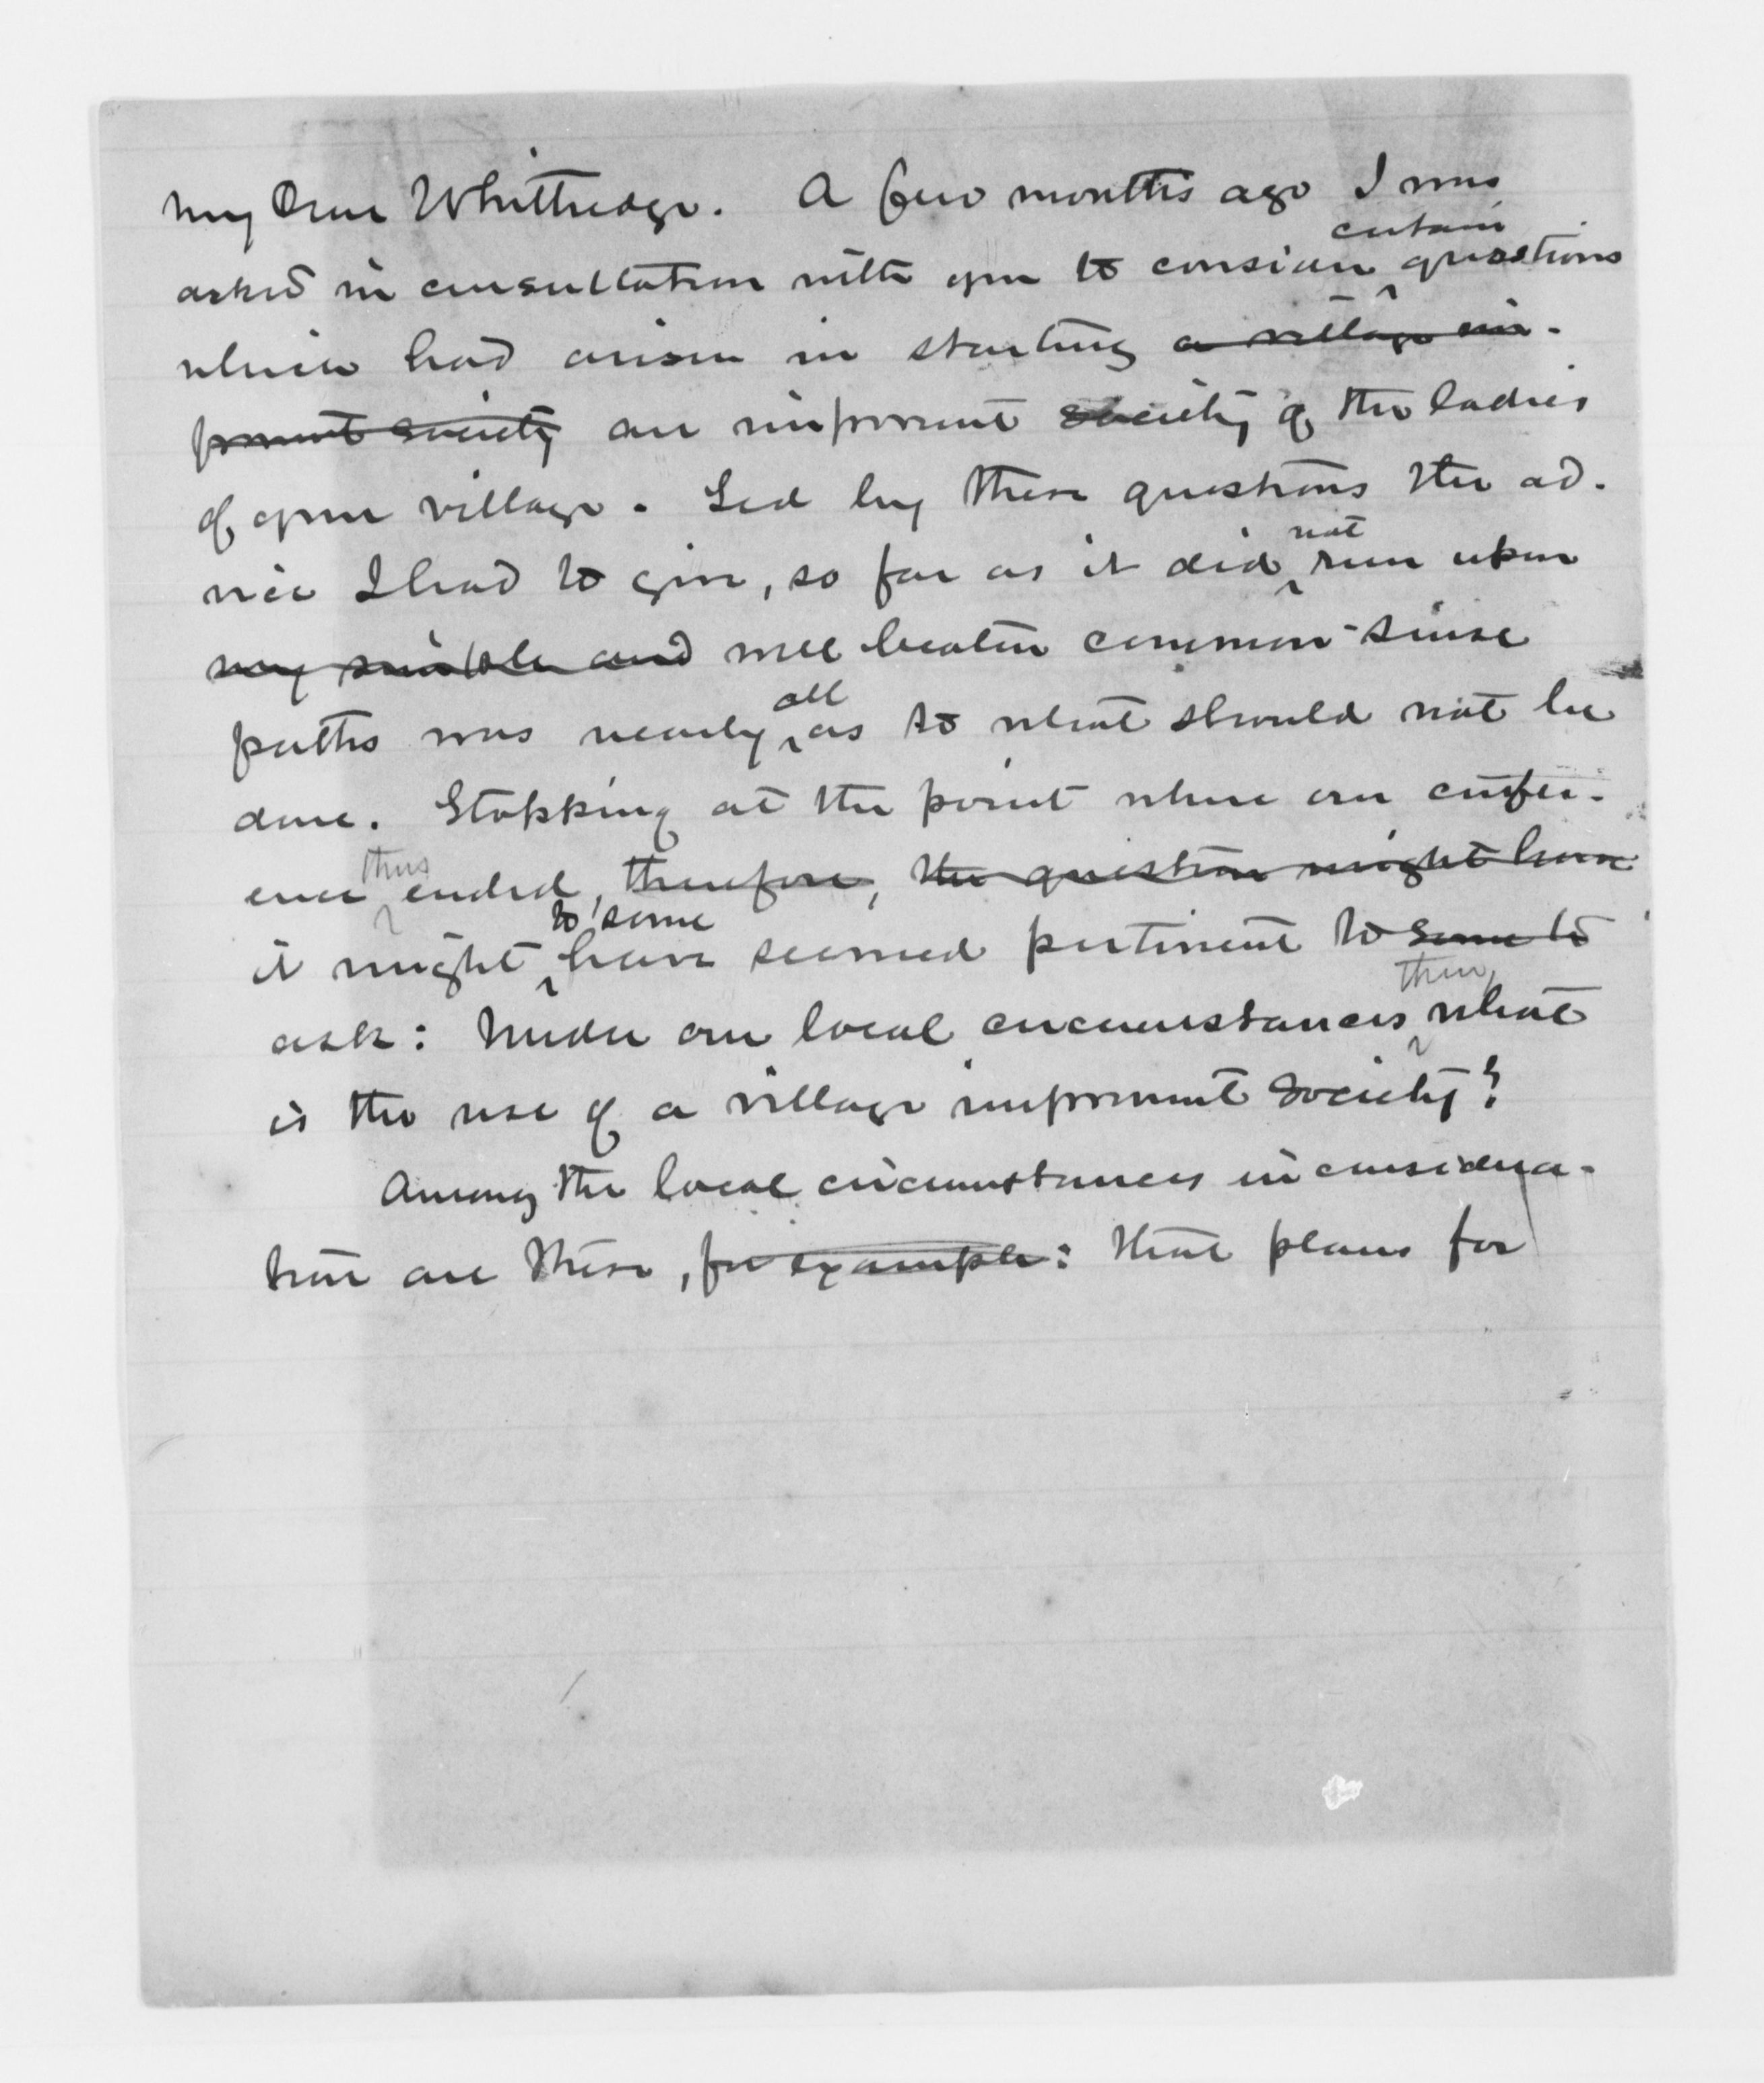 My Dear Whittredge. A few months ago I was
asked in consultation with you to consider certain questions
which had arisen in starting a village im-
provement society an improvement society of the ladies
of your village. Led by these questions the ad-
vice I had to give, so far as it did not run upon
very simple and well beaten common-sense
paths was nearly all as to what should not be
done. Stopping at the point where our confer-
ence thus ended, therefore, the question might have
it might to some have seemed pertinent to some to
ask: Under our local circumstances then, what
is the use of a village improvement society?
Among the local circumstances in considera-
tion are these, for example: that plans for